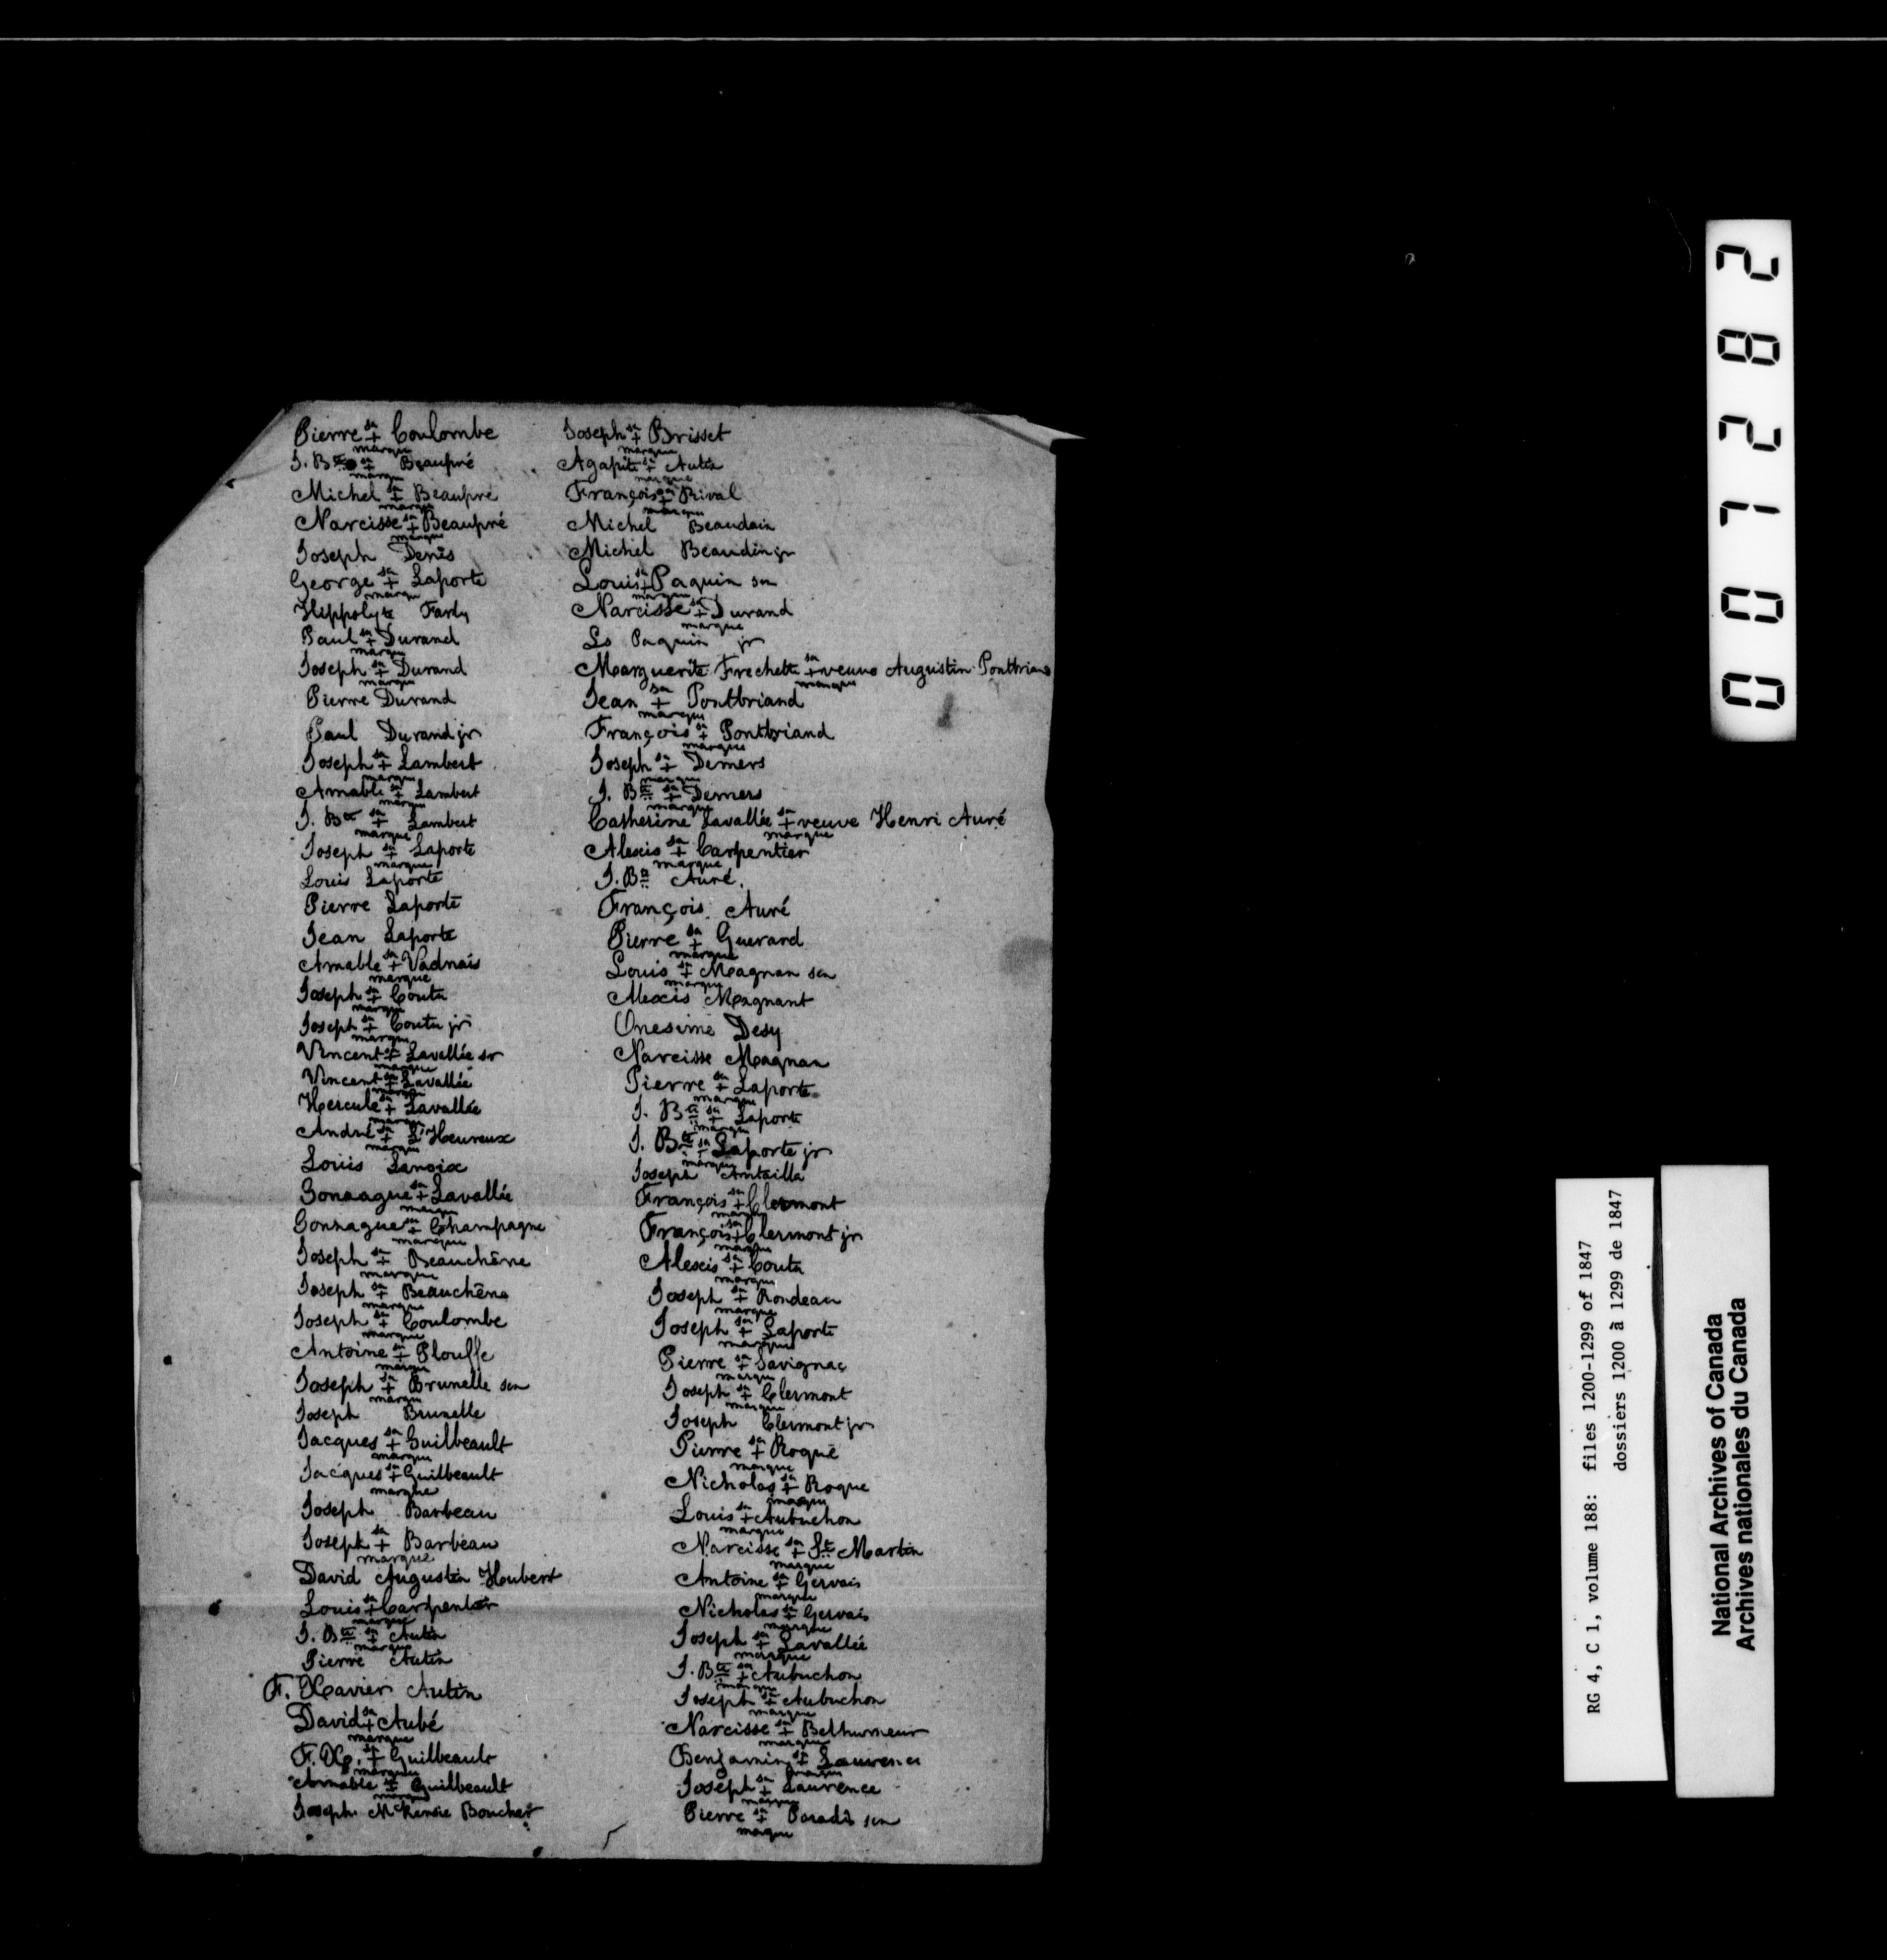 Pierre sa + marque Coulombe
J. Bte sa + marque Beaupré
Michel sa + marque Beaupré
Narcisse sa + marque Beaupré
Joseph Denis
George sa + marque Laporte
Hippolyte Farly
Paul sa + marque Durand
Joseph sa + marque Durand
Pierre Durand
Paul Durand jr
Joseph sa + marque Lambert
Amable sa + marque Lambert
J. Bte sa + marque Lambert
Joseph sa + marque Laporte
Louis Laporte
Pierre Laporte
Jean Laporte
Amable sa + marque Vadnais
Joseph sa + marque Coutu
Joseph sa + marque Coutu jr
Vincent sa + marque Lavallée sr
Vincent sa + marque Lavallée
Hercule sa + marque Lavallée
André sa + marque L'Heureux
Louis Lanoix
Gonzague sa + marque Lavallée
Gonzague sa + marque Champagne
Joseph sa + marque Beauchêne
Joseph sa + marque Beauchêne
Joseph sa + marque Coulombe
Antoine sa + marque Plouffe
Joseph sa + marque Brunelle sen
Joseph Brunelle
Jacques sa + marque Guilbeault
Jacques sa + marque Guilbeault
Joseph Barbeau
Joseph sa + marque Barbeau
David Augustin Houbert
Louis sa + marque Carpentier
J. Bte sa + marque Autin
Pierre Autin
F. Xavier Autin
David sa + marque Aubé
F. X. sa + marque Guilbeault
Amable sa + marque Guilbeault
Joseph McKensie Boucher
Joseph sa + marque Brisset
Agapite sa + marque Autin
François sa + marque Rival
Michel Beaudain
Michel Beaudin jr
Louis sa + marque Paquin sen
Narcisse sa + marque Durand
Ls Paquin jr
Marguerite Frechette sa + marque veuve Augustin Pontbriand
Jean sa + marque Pontbriand
François sa + marque Pontbriand
Joseph sa + marque Demers
J. Bte sa + marque Demers
Catherine Lavallée sa + marque veuve Henri Auré
Alexis sa + marque Carpentier
J. Bte Auré.
François Auré
Pierre sa + marque Guerard
Louis sa + marque Magnan sen
Alexis Magnant
Onesime Desy
Narcisse Magnan
Pierre sa + marque Laporte
J. Bte sa + marque Laporte
J. Bte sa + marque Laporte jr
Joseph Antailla
François sa + marque Clermont
François sa + marque Clermont jr
Alexis sa + marque Coutu
Joseph sa + marque Rondeau
Joseph sa + marque Laporte
Pierre sa + marque Savignac
Joseph sa + marque Clermont
Joseph Clermont jr
Pierre sa + marque Roque
Nicholas sa + marque Roque
Louis sa + marque Aubuchon
Narcisse sa + marque St Martin
Antoine sa + marque Gervais
Nicholas sa + marque Gervais
Joseph sa + marque Lavallée
J. Bte sa + marque Aubuchon
Joseph sa + marque Aubuchon
Narcisse sa + marque Belhumeur
Benjamin sa + marque Laurence
Joseph sa + marque Laurence
Pierre sa + marque Paradis sen
0071282
RG 4, C 1, volume 188: files 1200-1299 of 1847
dossiers 1200 à 1299 de 1847
National Archives of Canada
Archives nationales du Canada